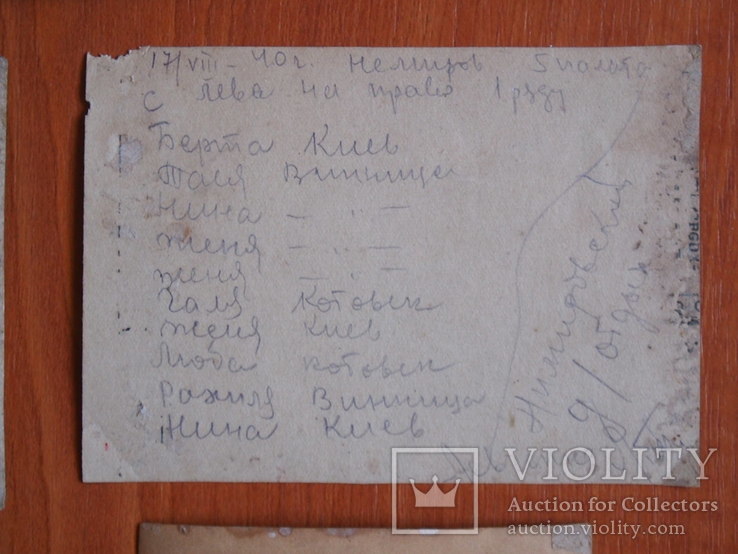 17/VIII-40г. Немиров 5 палата
с лева на право 1 ряду
Берта Киев
Тася Винница
Нина — " —
Женя — " —
Женя — " —
Галя Котовск
Женя Киев
Люба Котовск
Рахиля Винница
Нина Киев
Нимировский
д/отдых
VIOLITY
Auction for Collectors
auction.violity.com